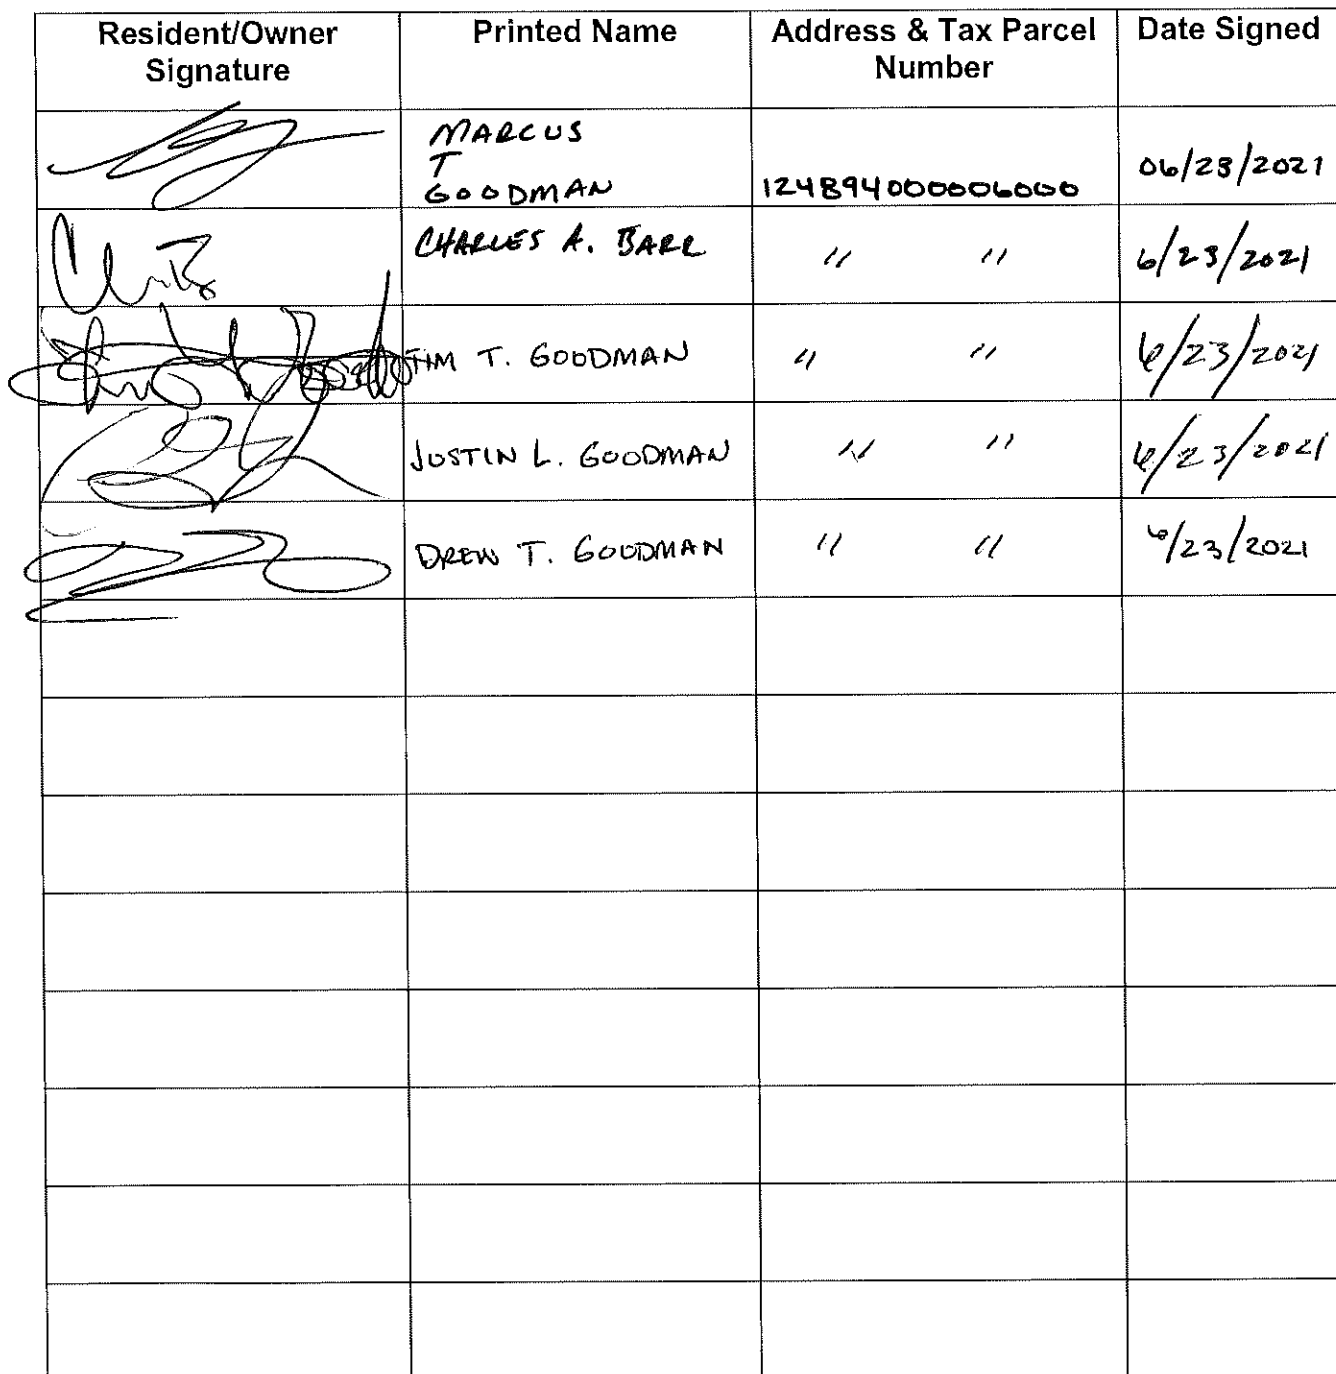 Resident/Owner Signature Printed Name Address & Tax Parcel Number Date Signed
MARCUS
T
GOODMAN 124894000006000 06/23/2021
CHARLES A. BARR " " 6/23/2021
TIM T. GOODMAN " " 6/23/2021
JUSTIN L. GOODMAN " " 6/23/2021
DREW T. GOODMAN " " 6/23/2021